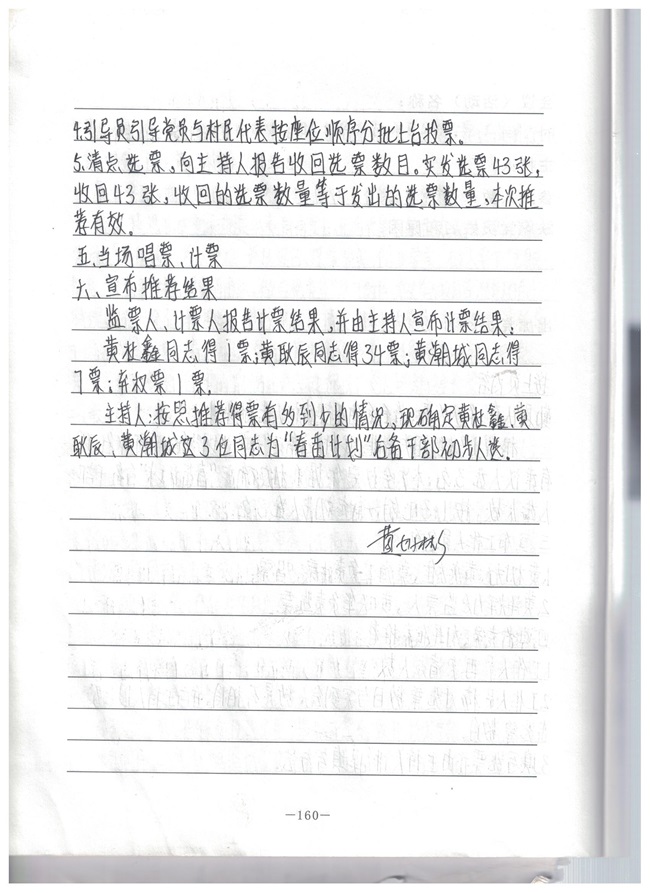 4.引导员引导党员与村民代表按座位顺序分批上台投票。
5.清点选票,向主持人报告收回选票数目。实发选票43张,
收回43张,收回的选票数量等于发出的选票数量、本次推
荐有效。
五、当场唱票、计票
六、宣布推荐结果
监票人、计票人报告计票结果,并由主持人宣布计票结果:
黄杜鑫同志得1票;黄耿辰同志得34票;黄潮城同志得
7票;弃权票1票。
主持人:按照推荐得票有多到少的情况,现确定黄杜鑫、黄
耿辰、黄潮城这3位同志为“春苗计划”后备干部初步人选。
—160—